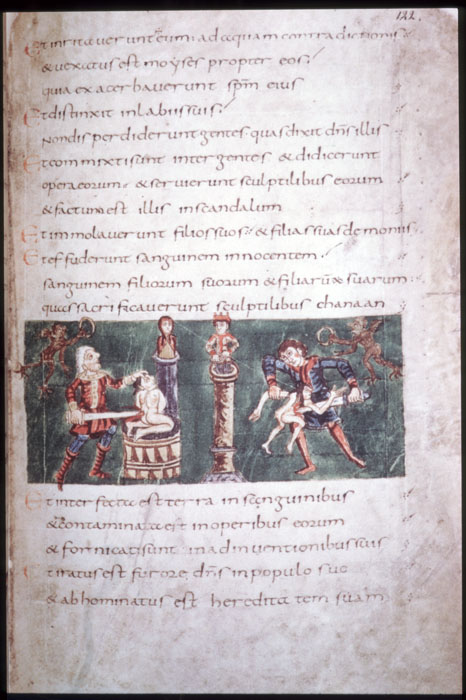 122.
Et irritaverunt eum ad aquam contradictionis
& vexatus est moyses propter eos;
quia exacerbaverunt spm eius
Et distinxit in labiis suis;
Non disperdiderunt gentes quas dixit dns illis
Et commixti sunt inter gentes & didicerunt
opera eorum & servierunt sculptilibus eorum
& factum est illis in scandalum
Et immolaverunt filios suos & filias suas demoniis
Et effuderunt sanguinem innocentem
sanguinem filiorum suorum & filiarum suarum
quas sacrificaverunt sculptilibus chanaan
Et interfecta est terra in sanguinibus
& contaminata est in operibus eorum
& fornicati sunt in adinventionibus suis
Et iratus est furore dns in populo suo
& abhominatus est hereditatem suam